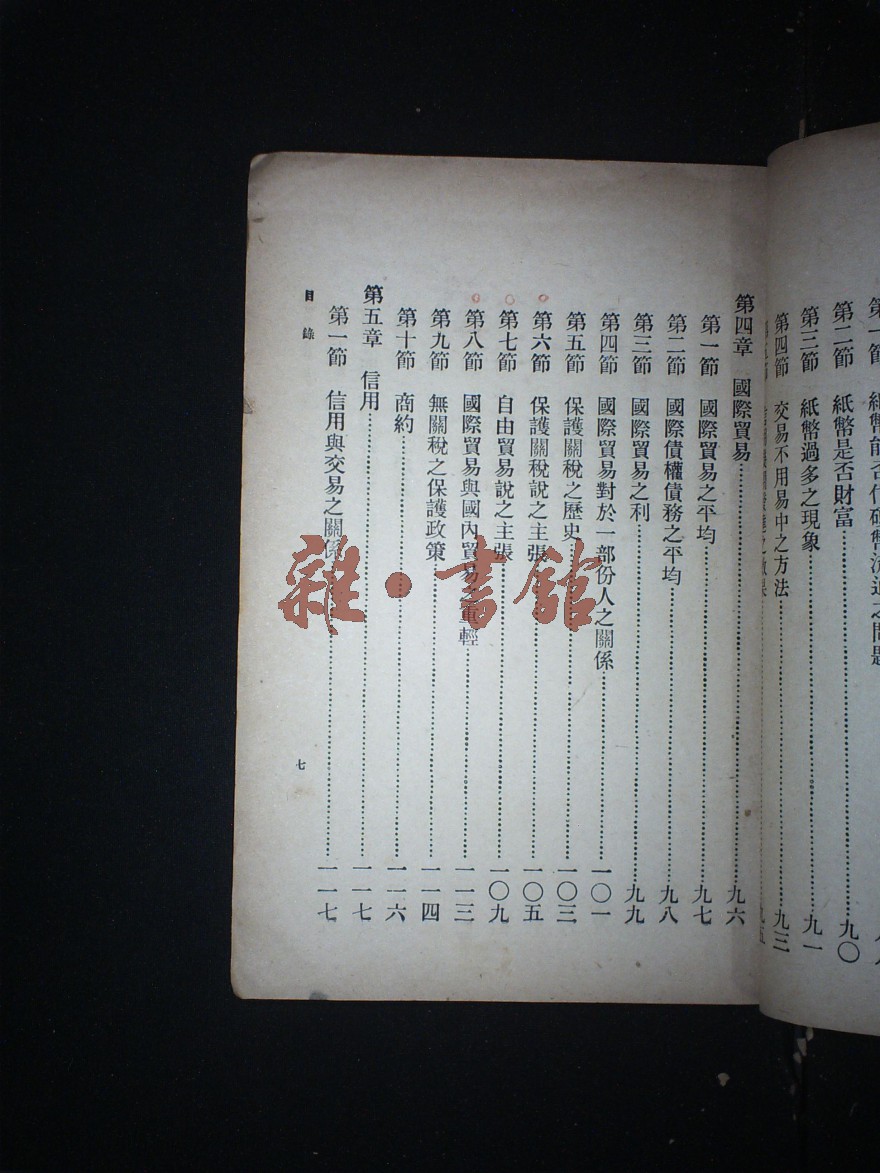 第二節　紙幣是否財富……九〇
第三節　紙幣過多之現象……九一
第四節　交易不用易中之方法……九三
第四章　國際貿易……九六
第一節　國際貿易之平均……九七
第二節　國際債權債務之平均……九八
第三節　國際貿易之利……九九
第四節　國際貿易對於一部份人之關係……一〇一
第五節　保護關稅之歷史……一〇三
第六節　保護關稅說之主張……一〇五
第七節　自由貿易說之主張……一〇九
第八節　國際貿易與國內貿易之重輕……一一三
第九節　無關稅之保護政策……一一四
第十節　商約……一一六
第五章　信用……一一七
第一節　信用與交易之關係……一一七
目錄
七
雜·書館